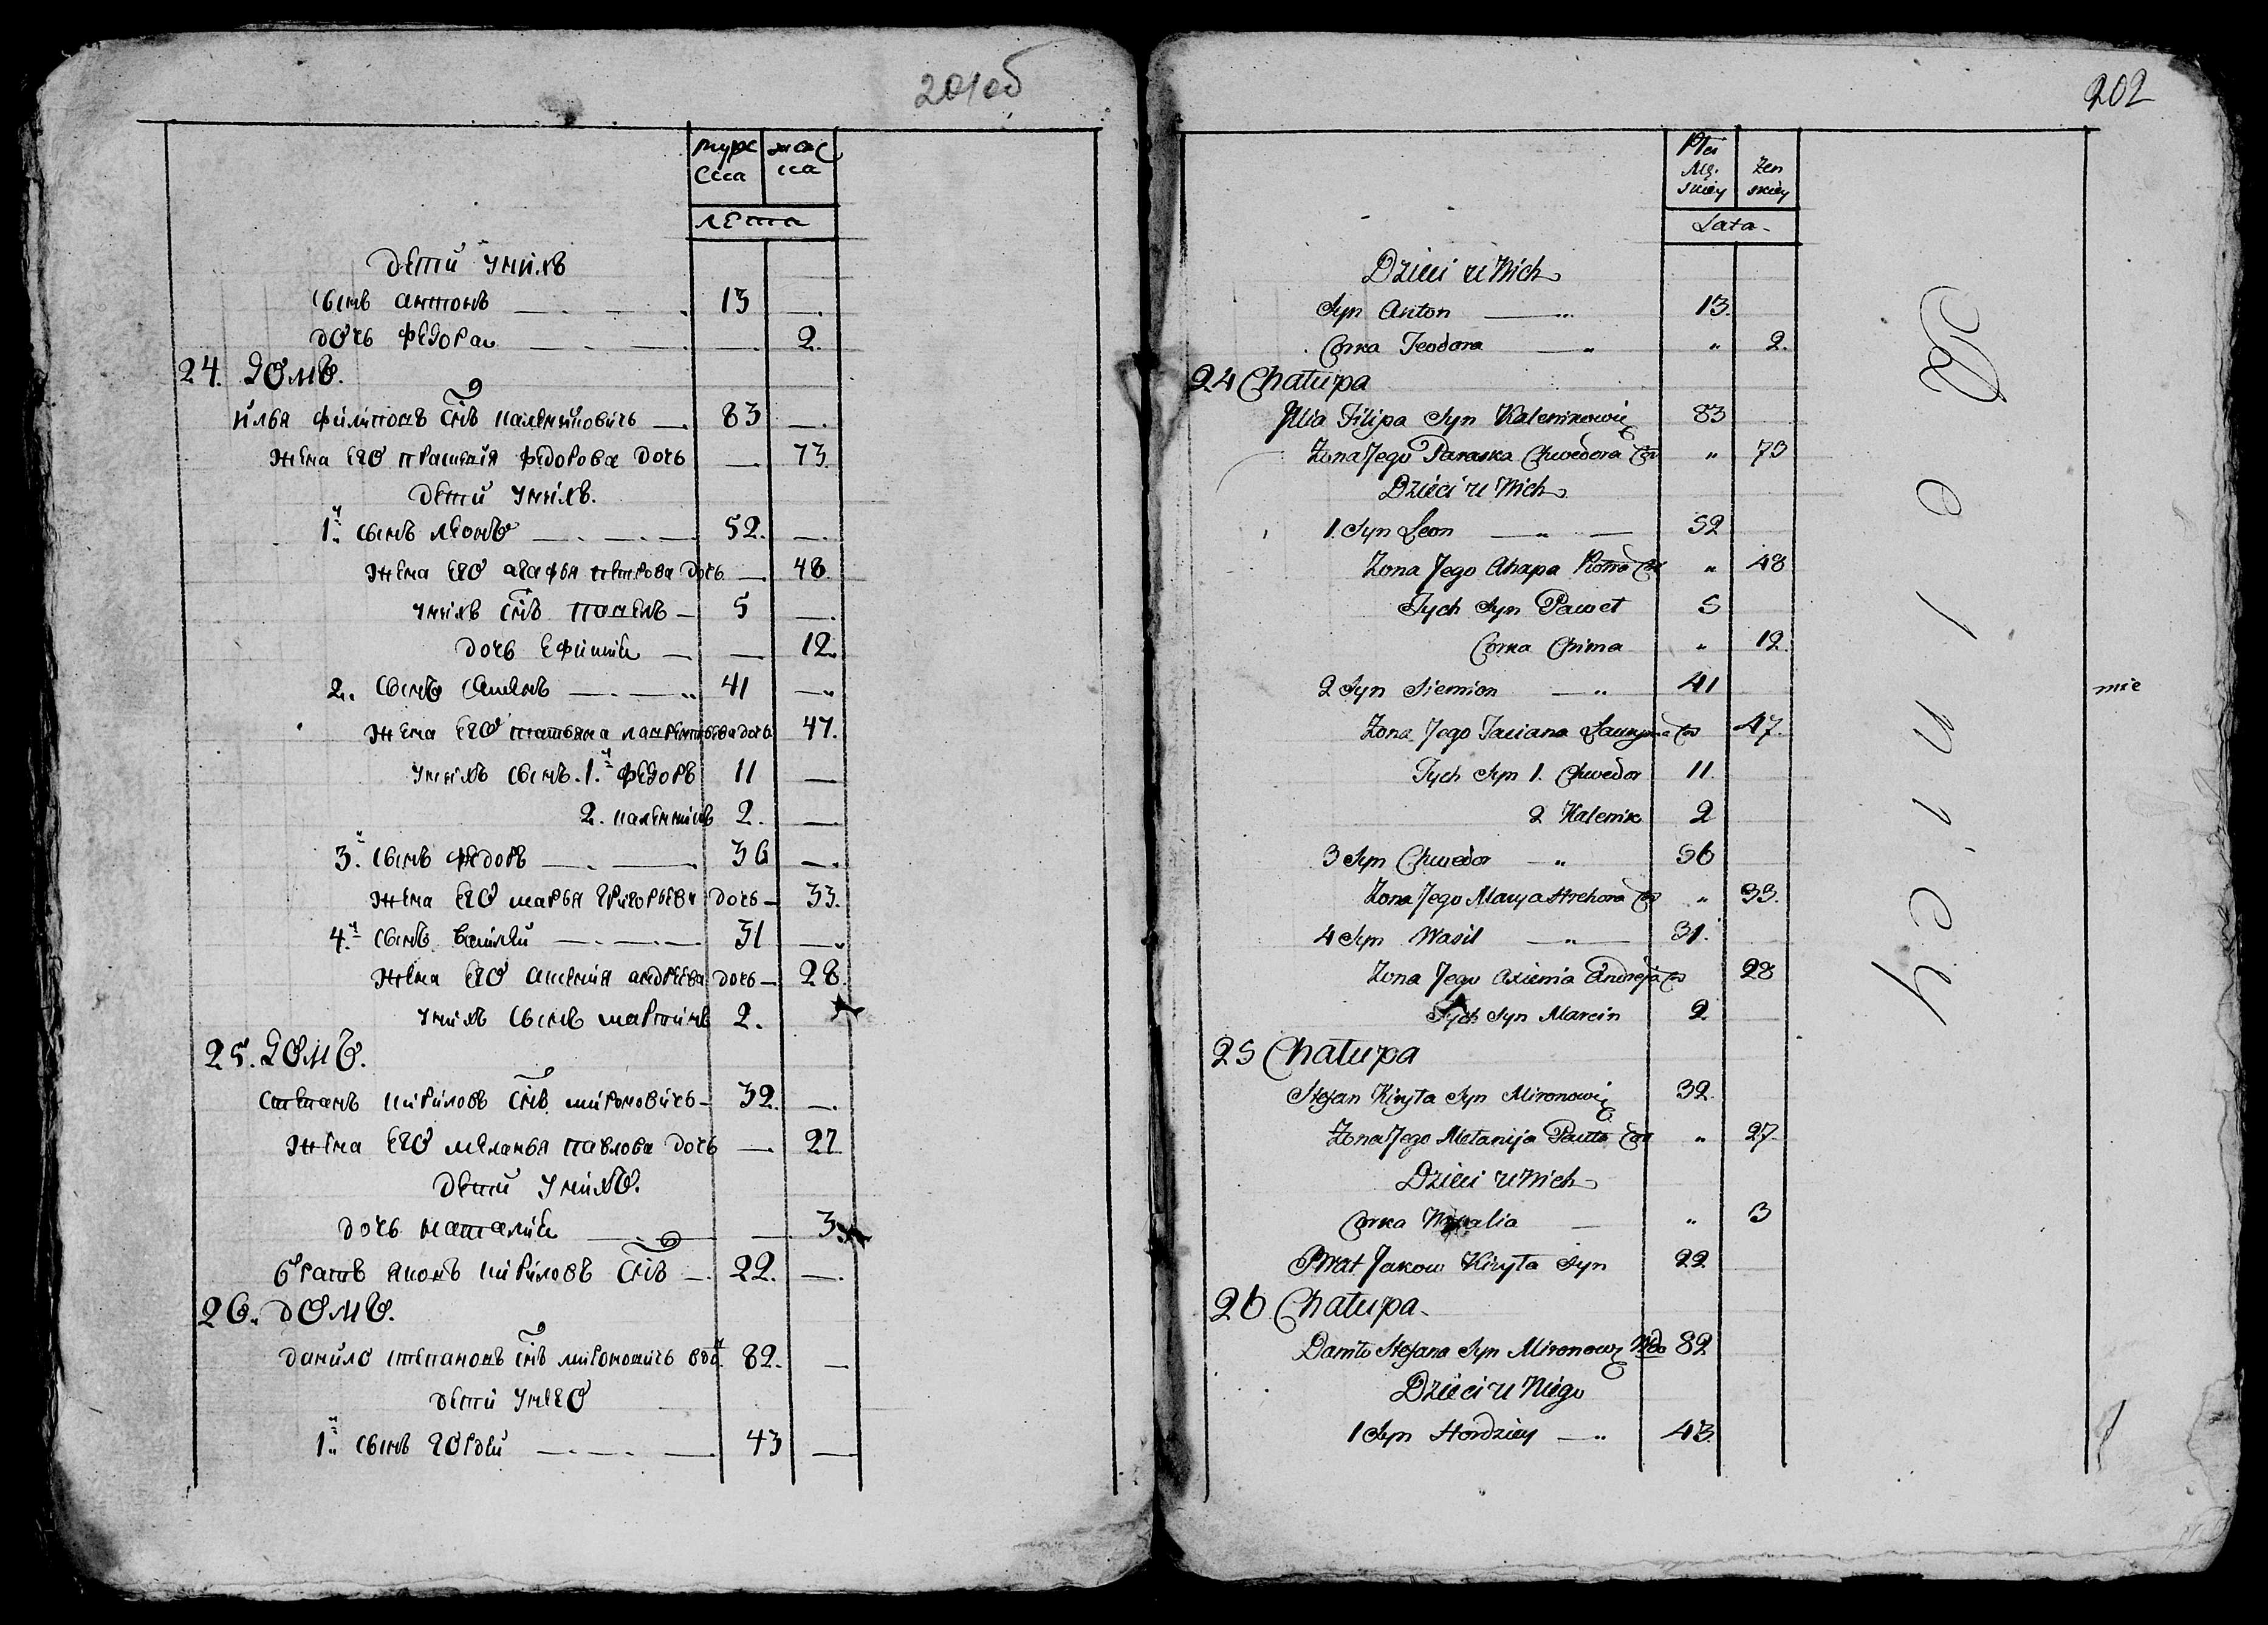 201об
мужс жен
ска ска
лета
дети у них
сынъ антонъ — 13 —
дочь федора — 2.
24. Домъ.
илья филиповъ снъ калениковичь — 83 —
жена его прасковiя федорова дочь — 73.
дети у нихъ.
1й сынъ леонъ — 52. —
жена его агафья петрова дочь — 48.
у нихъ снъ павелъ — 5 —
дочь ефимия — 12.
2. сынъ семенъ — 41 —
жена его татьяна лаврентьева дочь 47.
у нихъ сынъ. 1.й федоръ 11 —
2. каленникъ 2. —
3.й сынъ федоръ — 36 —
жена его марья григорьева дочь — 33.
4.й сынъ василей — 31 —
жена его аксения андреева дочь — 28.
у нихъ сынъ мартинъ 2.
25. Домъ.
степанъ кириловъ снъ мироновичь — 32. —
жена его меланья павлова дочь — 27
дети у нихъ.
дочь наталия — 3
братъ яковъ кириловъ снъ — 22. —
26. домъ.
данило степановъ снъ мироновичь вдо. 82. —
дети у него
1й сынъ гордей — 43 —
202
Płci
Mę. Żen
skiey skiey
Lata
Dzieci u Nich
Syn Anton — 13.
Corka Teodora — " 2.
24 Chałupa
Illia Filipa Syn Kalenikowicz 83
Żona Jego Paraska Chwedora Cor " 73
Dzieci u Nich
1. Syn Leon — 52
Żona Jego Ahapa Piotra Cor " 48
Tych Syn Paweł 5
Corka Chima " 12
2 Syn Siemion — 41
Żona Jego Taciana Ławryna Cor 47.
Tych Syn 1. Chwedor 11.
2 Kalenik 2
3 Syn Chwedor — 36
Żona Jego Marya Hrehora Cor " 33.
4 Syn Wasil — 31.
Żona Jego Axienia Andreja Cor 28
Tych Syn Marcin 2
25 Chałupa
Stefan Kiryła Syn Mironowicz 32.
Żona Jego Mełanija Pawła Cor " 27.
Dzieci u Nich
Corka Natalia — " 3
Brat Jakow Kiryła Syn 22
26 Chałupa
Daniło Stefana Syn Mironowicz Wdo 82
Dzieci u Niego
1 Syn Hordziey — 43.
mie